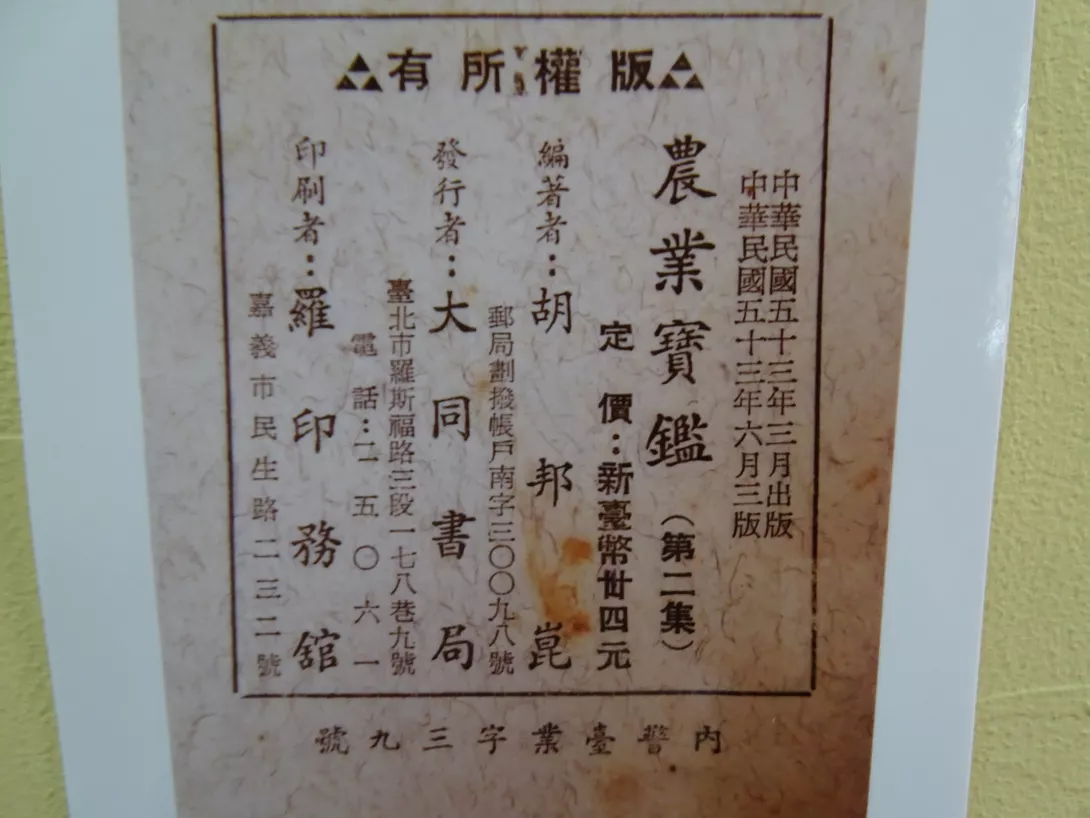 版權所有
中華民國五十三年三月出版
中華民國五十三年六月三版
農業寶鑑（第二集）
定價：新臺幣卅四元
編著者：胡邦崑
郵局劃撥帳戶南字三〇〇九八號
發行者：大同書局
臺北市羅斯福路三段一七八巷九號
電話：二五〇六一
印刷者：羅印務舘
嘉義市民生路二三二號
內警臺業字三九號